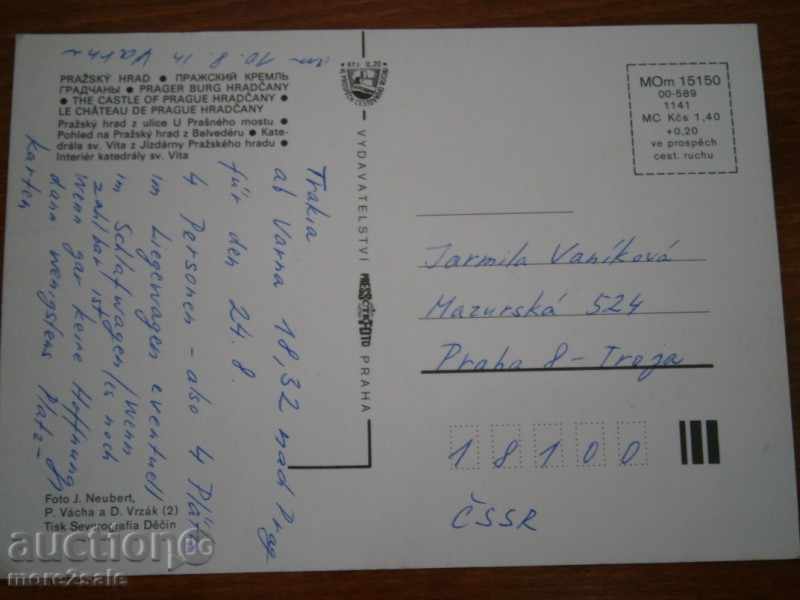 am 10. 8. in Varna
PRAŽSKÝ HRAD • ПРАЖСКИЙ КРЕМЛЬ
ГРАДЧАНЫ • PRAGER BURG HRADČANY
• THE CASTLE OF PRAGUE HRADČANY •
LE CHÂTEAU DE PRAGUE HRADČANY
Pražský hrad z ulice U Prašného mostu •
Pohled na Pražský hrad z Belvedéru • Kate-
drála sv. Víta z Jízdárny Pražského hradu •
Interiér katedrály sv. Víta
Trakia
ab Varna 18,32 nach Prag
für den 24. 8.
4 Personen – also 4 Plätze
im Liegewagen eventuell
im Schlafwagen /Wenn
es noch
zahlbar ist
Wenn gar keine Hoffnung
dann wenigstens Platz-
karten
Foto J. Neubert,
P. Vácha a D. Vrzák (2)
Tisk Severografia Děčín
VYDAVATELSTVÍ PRESSFOTO PRAHA
MOm 15150
00-589
1141
MC Kčs 1,40
+0,20
ve prospěch
cest. ruchu
Jarmila Vaníková
Mazurská 524
Praha 8 - Troja
18100
ČSSR
auction
more2sale